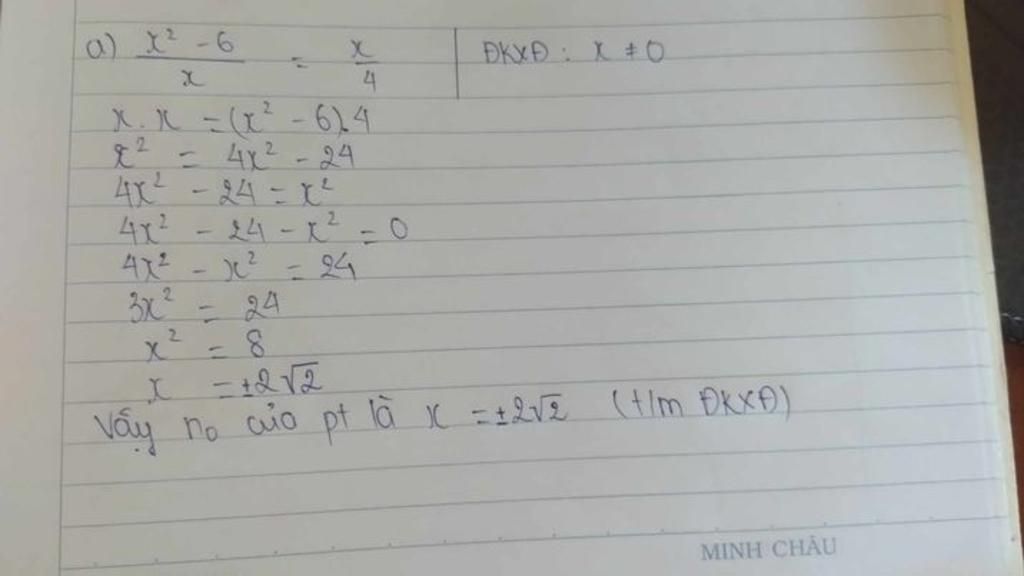 a) \frac{x² - 6}{x} = \frac{x}{4} | ĐKXĐ : x ≠ 0
x . x = (x² - 6).4
x² = 4x² - 24
4x² - 24 = x²
4x² - 24 - x² = 0
4x² - x² = 24
3x² = 24
x² = 8
x = ±2√2
Vậy n₀ của pt là x = ±2√2 (t/m ĐKXĐ)
MINH CHÂU